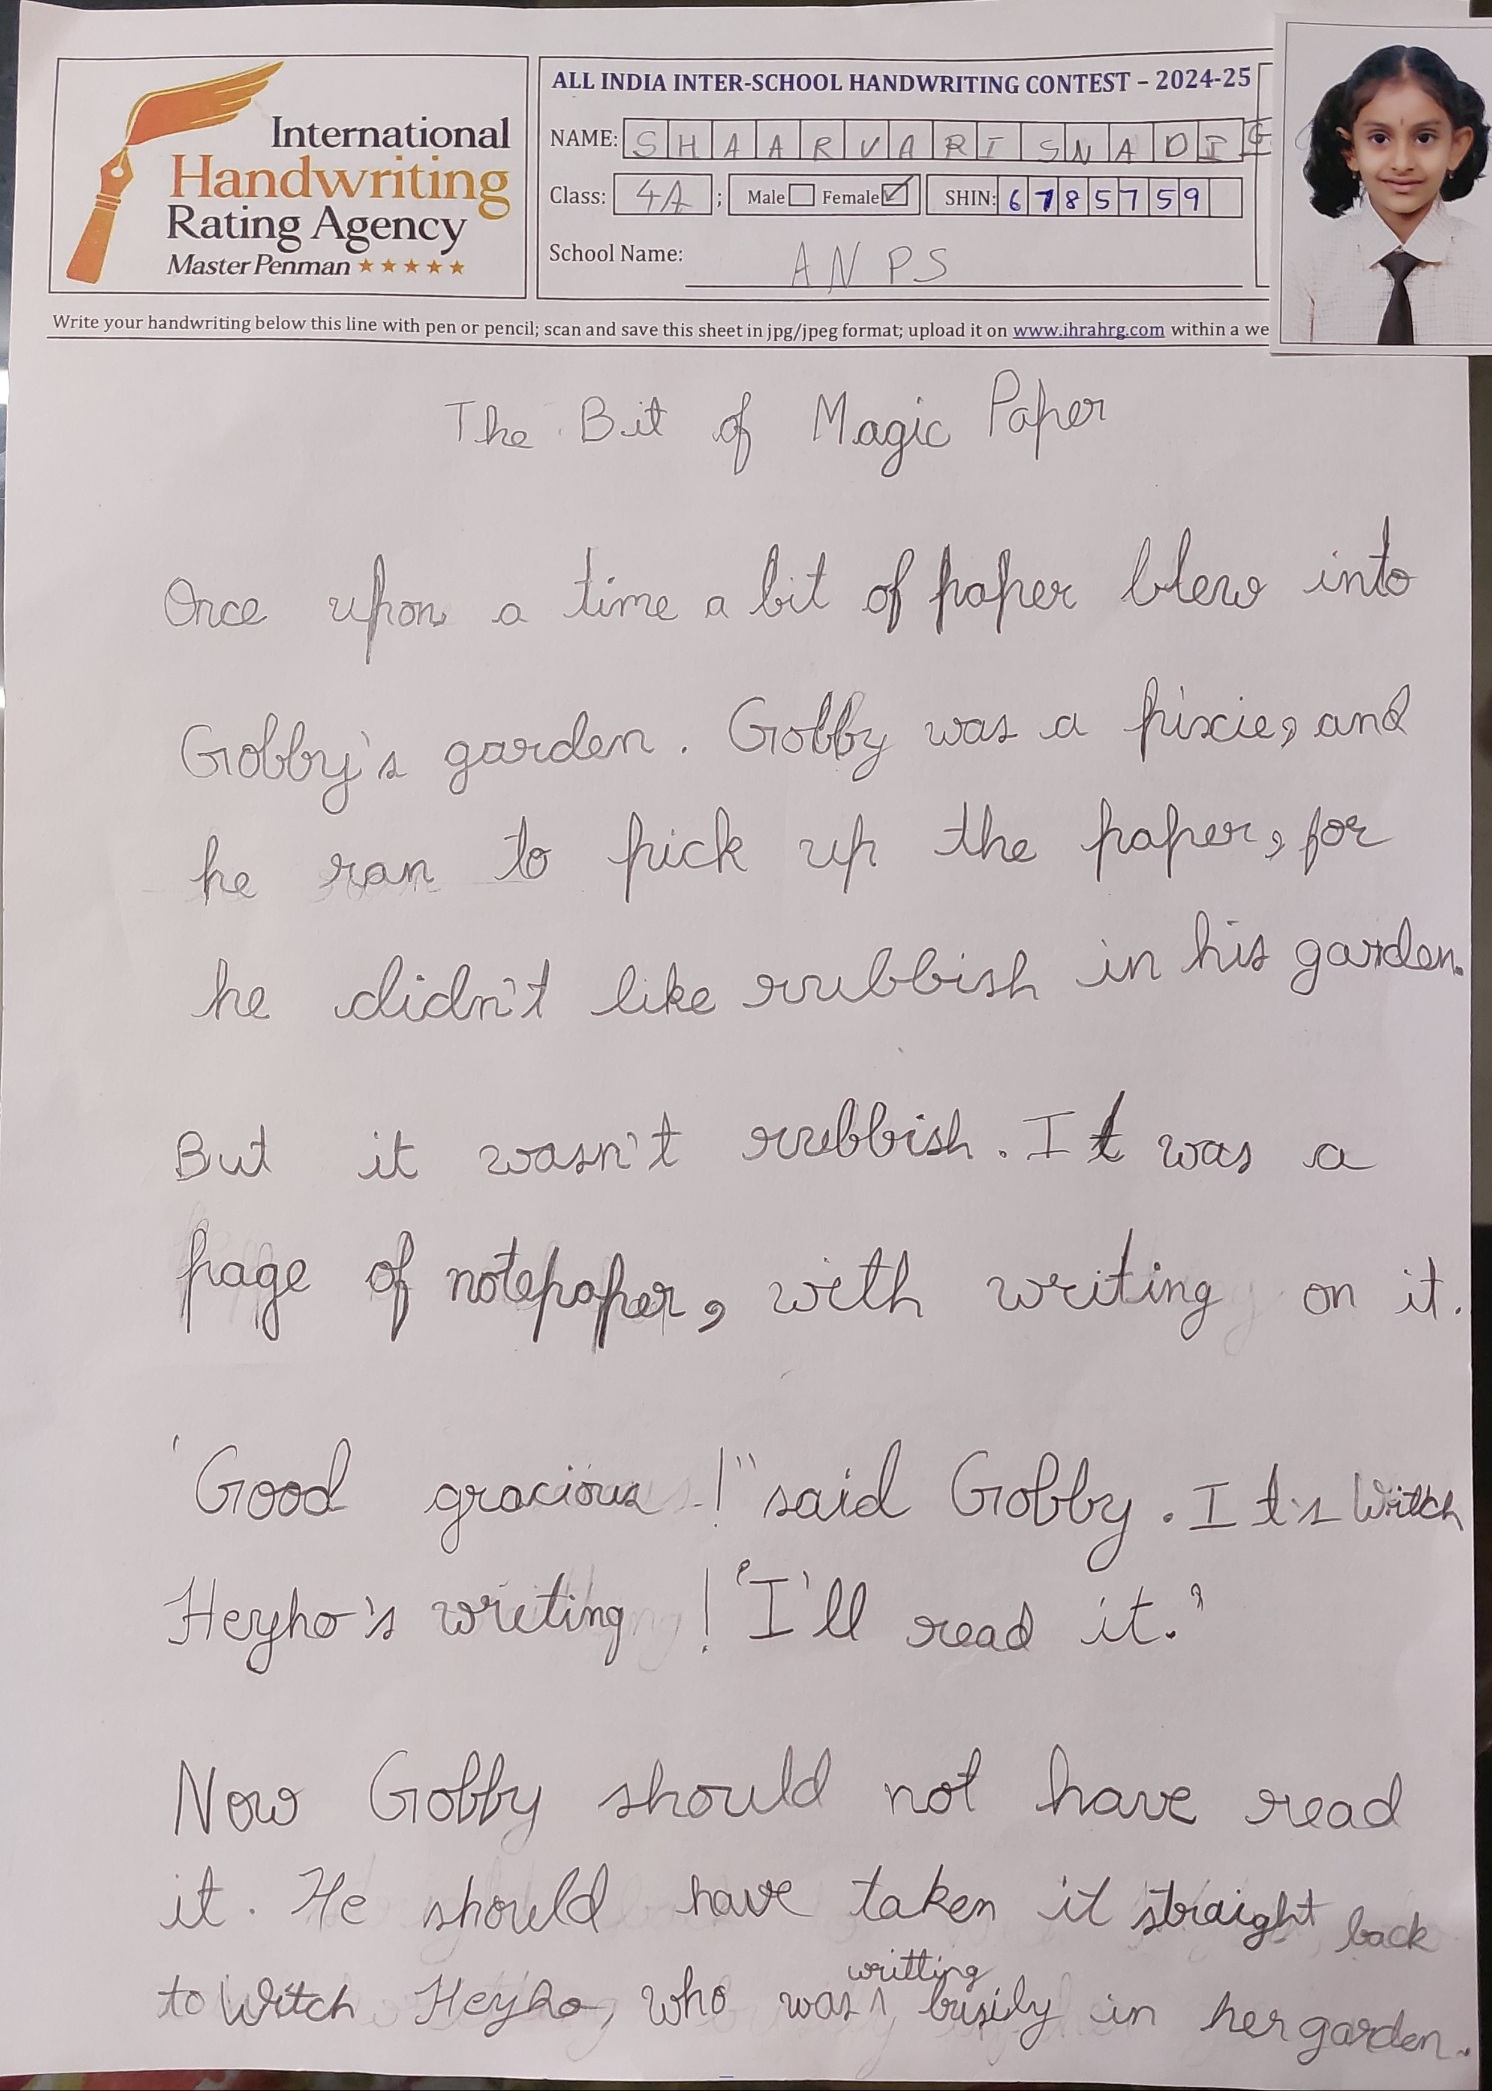 International
Handwriting
Rating Agency
Master Penman
ALL INDIA INTER-SCHOOL HANDWRITING CONTEST – 2024-25
NAME: SHAARVARI SNADIG
Class: 4A ; Male Female SHIN: 6785759
School Name: ANPS
Write your handwriting below this line with pen or pencil; scan and save this sheet in jpg/jpeg format; upload it on www.ihrahrg.com within a we
The Bit of Magic Paper
Once upon a time a bit of paper blew into
Gobby's garden. Gobby was a pixie, and
he ran to pick up the paper, for
he didn't like rubbish in his garden.
But it wasn't rubbish. It was a
page of notepaper, with writing on it.
'Good gracious!" said Gobby. It's Witch
Heyho's writing! 'I'll read it.'
Now Gobby should not have read
it. He should have taken it straight back
writting
to Witch Heyho, who was busily in her garden.